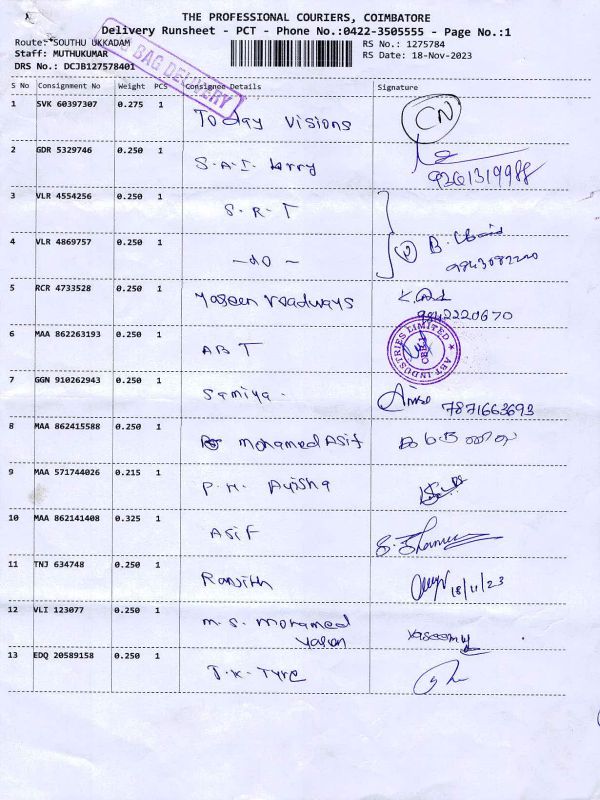 THE PROFESSIONAL COURIERS, COIMBATORE
Delivery Runsheet - PCT - Phone No.:0422-3505555 - Page No.:1
Route: SOUTHU UKKADAM
RS No.: 1275784
Staff: MUTHUKUMAR
RS Date: 18-Nov-2023
DRS No.: DCJB127578401
BAG DELIVERY
S No Consignment No Weight PCS Consignee Details Signature
1 SVK 60397307 0.275 1 Today Visions CN
2 GDR 5329746 0.250 1 S.A.I lorry
9261319988
3 VLR 4554256 0.250 1 S.R.T
4 VLR 4869757 0.250 1 -do- 2 B.
5 RCR 4733528 0.250 1 Yaseen Roadways
9842220670
6 MAA 862263193 0.250 1 ABT ABT INDUSTRIES LIMITED
7 GGN 910262943 0.250 1 Samiya
7871663693
8 MAA 862415588 0.250 1 mohamed Asif
9 MAA 571744026 0.215 1 P.M. Ayisha
10 MAA 862141408 0.325 1 Asif
11 TNJ 634748 0.250 1 Ranjith 18/11/23
12 VLI 123077 0.250 1 M.S. Mohamed
13 EDQ 20589158 0.250 1 J.K. Tyre